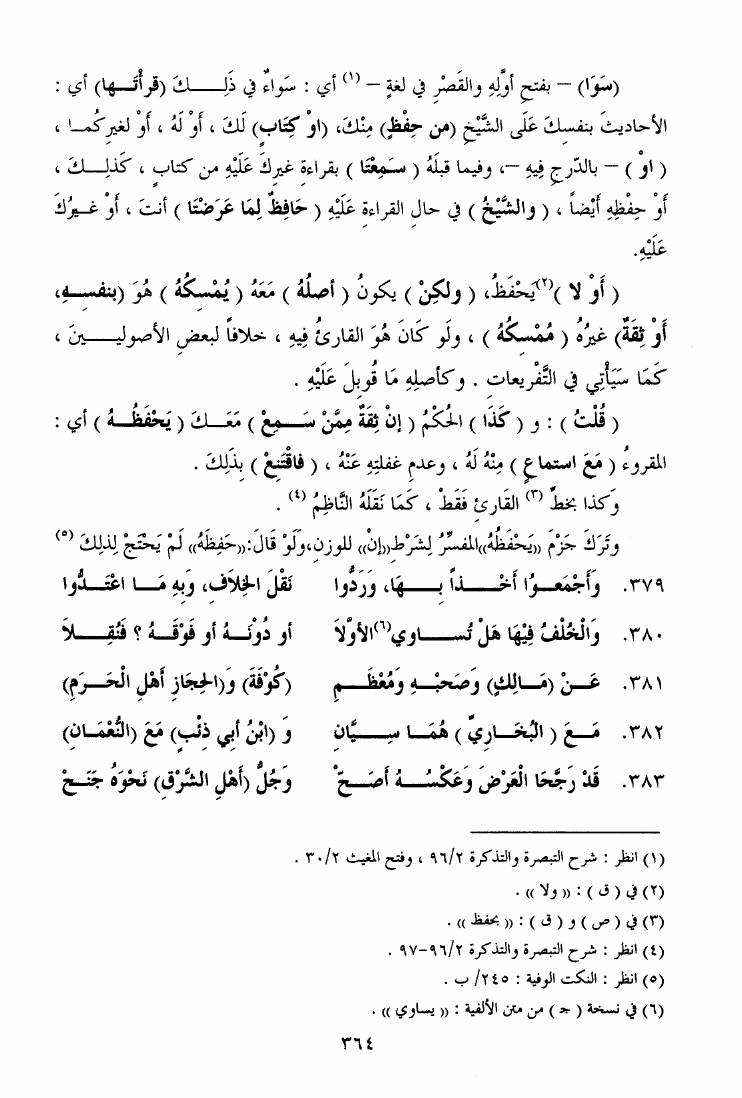 (سَوَا) – بفتحِ أوَّلِهِ والقَصْرِ في لغةٍ – (١) أي : سَواءٌ في ذَلِكَ (قرأتَها) أي :
الأحاديثَ بنفسكَ عَلَى الشَّيْخِ (من حِفْظٍ) مِنْكَ، (اوْ كِتَابٍ) لَكَ ، أَوْ لَهُ ، أَوْ لغيرِكُما ،
( اوْ ) – بالدّرجِ فِيهِ –، وفيما قبلَهُ ( سَمِعْتَا ) بقراءةِ غيركَ عَلَيْهِ من كتابٍ ، كَذلِكَ ،
أَوْ حِفْظِهِ أَيْضاً ، ( والشَّيْخُ ) في حالِ القراءةِ عَلَيْهِ ( حَافِظٌ لِمَا عَرَضْتَا ) أنتَ ، أَوْ غيرُكَ
عَلَيْهِ.
( أَوْ لا )(٢)يَحْفَظُ، ( ولكِنْ ) يكونُ ( أصلُهُ ) مَعَهُ ( يُمْسكُهُ ) هُوَ (بنفسِهِ،
أَوْ ثِقَةٌ) غيرُهُ ( مُمْسكُهُ ) ، ولَو كَانَ هُوَ القارئُ فِيهِ ، خلافاً لبعضِ الأصوليينَ ،
كَمَا سَيَأْتِي في التَّفْريعات . وكأصلِهِ مَا قُوبلَ عَلَيْهِ .
( قُلْتُ ) : و ( كَذَا ) الحُكْمُ ( إنْ ثِقَةٌ مِمَّنْ سَمِعْ ) مَعَكَ ( يَحْفَظُهُ ) أي :
المقروءُ ( مَعَ استماعٍ ) مِنْهُ لَهُ ، وعدمِ غفلتِهِ عَنْهُ ، ( فاقْتَنِعْ ) بذلِكَ .
وكذا بخطِّ (٣) القارئِ فَقَطْ ، كَمَا نَقَلَهُ النَّاظِمُ (٤) .
وتَرَكَ جَزْمَ «يَحْفَظُهُ»المفسِّرُ لِشَرْطِ«إنْ» للوزنِ،ولَوْ قَالَ:«حَفِظَهُ» لَمْ يَحْتَجْ لِذلِكَ (٥)
٣٧٩. وَأَجْمَعُوا أَخْذاً بِهَا، وَرَدُّوا نَقْلَ الخِلاَفِ، وَبِهِ مَا اعْتَدُّوا
٣٨٠. وَالْخُلْفُ فِيْهَا هَلْ تُسَاوي(٦)الأوَّلاَ أو دُوْنَهُ أو فَوْقَهُ ؟ فَنُقِلاَ
٣٨١. عَنْ (مَالِكٍ) وَصَحْبِهِ وَمُعْظَمِ (كُوْفَةَ) وَ(الحِجَازِ أَهْلِ الْحَرَمِ)
٣٨٢. مَعَ ( الْبُخَارِيِّ ) هُمَا سِيَّانِ وَ (ابْنُ أبي ذِئْبٍ) مَعَ (النُّعْمَانِ)
٣٨٣. قَدْ رَجَّحَا الْعَرْضَ وَعَكْسُهُ أَصَحّْ وَجُلُّ (أَهْلِ الشَّرْقِ) نَحْوَهُ جَنَحْ
(١) انظر : شرح التبصرة والتذكرة ٩٦/٢ ، وفتح المغيث ٣٠/٢ .
(٢) في ( ق ) : « ولا » .
(٣) في ( ص ) و ( ق ) : « بحفظ » .
(٤) انظر : شرح التبصرة والتذكرة ٩٦/٢-٩٧ .
(٥) انظر : النكت الوفية : ٢٤٥/ ب .
(٦) في نسخة ( جـ ) من متن الألفية : « يساوي » .
٣٦٤